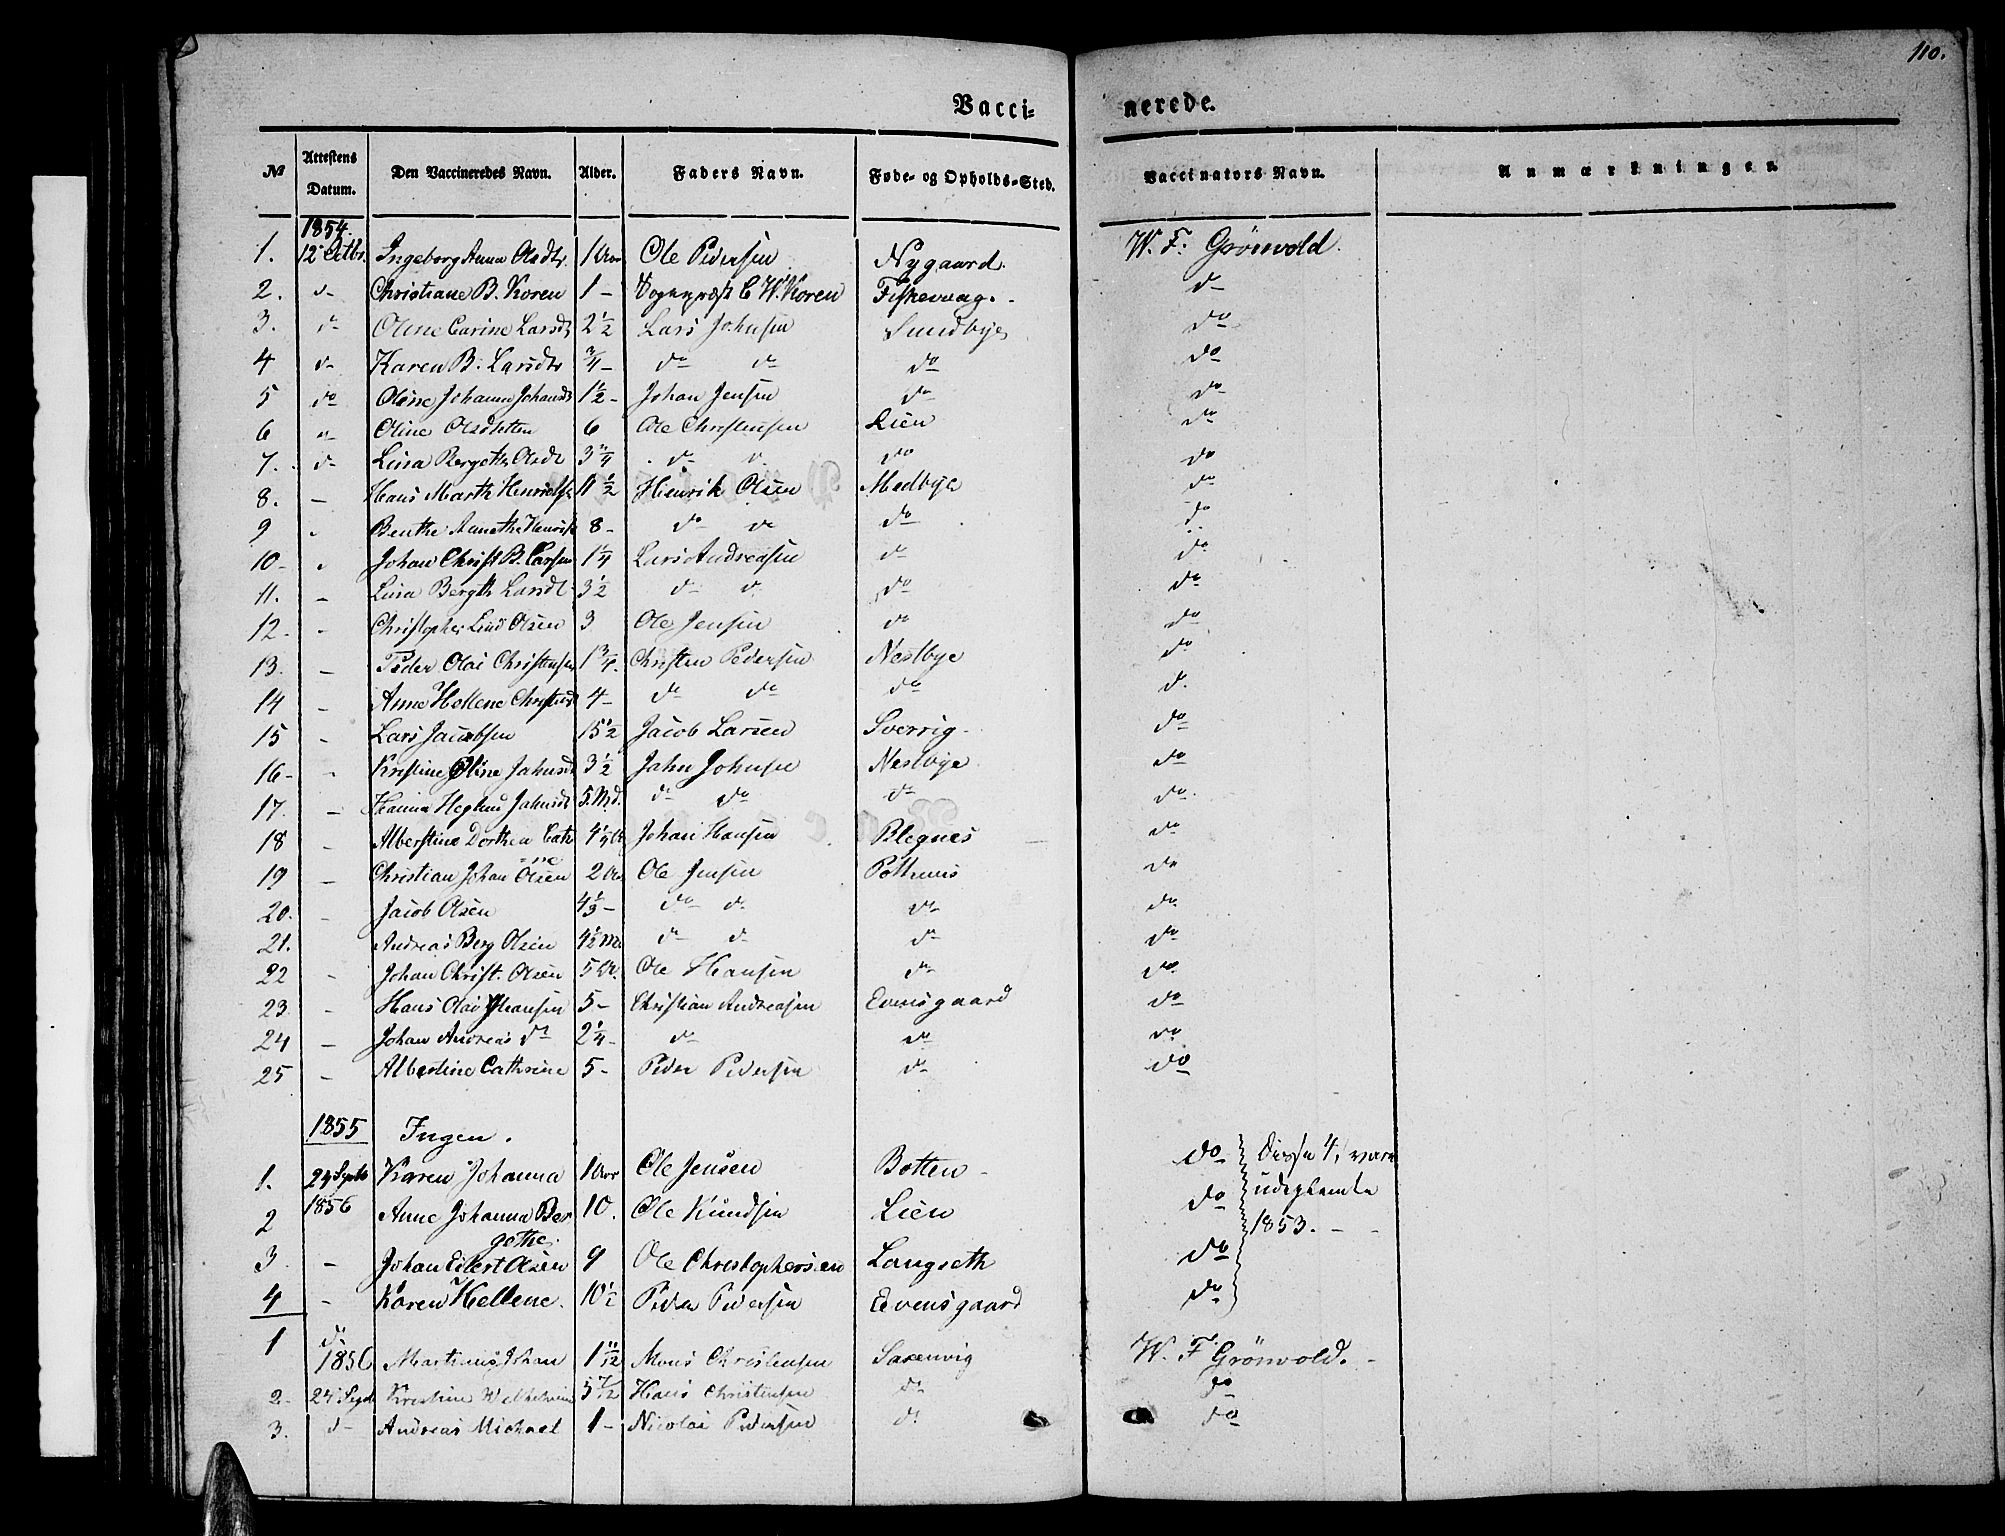 110.
Vacci-nerede.
No Attestens Datum. Den Vaccineredes Navn. Alder. Faders Navn. Føde- og Opholds-Sted. Vaccinators Navn. Anmærkninger.
1854.
1. 12 Octbr. Ingeborg Anna Olsdtr. 1 Aar Ole Pedersen Nygaard. W. F. Grönvold.
2. do Christiane B. Koren 1 - Sognepræst C W. Koren Fiskevaag. do
3. do Oline Carine Larsdtr 2 1/2 Lars Johnsen Sundbye do
4 do Karen B. Larsdtr 3/4 - do do do do
5 do Oline Johanna Johansdt 1 1/2 - Johan Jensen do do
6 do Oline Olsdatten 6 Ole Christensen Lien do
7. do Lina Bergethe Olsdt 3 3/4 do do do do
8. - Hans Marth Henriksen 11 1/2 Henrik Olsen Medbye do
9 - Benthe Anethe Henriks 8 - do do do do
10 - Johan Christ B. Larsen 1 1/4 Lars Andreasen do do
11. - Lina Bergth Larsdt 3 1/2 do do do do
12. - Christopher Lind Olsen 3 Ole Jensen do do
13. - Peder Olai Christensen 1 3/4. Christen Pedersen Nestbye do
14 - Anne Hellene Christensdt 4 - do do do do
15 - Lars Jacobsen 15 1/2 Jacob Larsen Sverrig do
16 - Kristine Oline Jahnsdt 3 1/2 Jahn Johnsen Nestbye do
17. - Hanna Heglund Jahnsdt 5. Md. do do do do
18 - Albertine Dorthea Cath Johan Hansen Blegnes do
ine
19 - Christian Johan Olsen 2 Aar Ole Jensen Pothuus do
20. - Jacob Olsen 4 1/3 - do do do do
21. Andreas Berg Olsen 4 1/2 M. do do do do
22 - Johan Christ. Olsen 5 A. Ole Hansen do do
23. - Hans Olai 5 - Christian Andreasen Evensgaard do
24 - Johan Andreas do 2 1/4 - do do do
25 - Albertine Cathrine 5 - Peder Pedersen do do
1855 Ingen.
1. 24 Septb Karen Johanna 1 Aar Ole Jensen Botten - do Disse 4, vare
1856
2 Anne Johanna Ber 10. Ole Knudsen Lien do udeglemte
gethe. 1853. -
3 - Johan Eilert Olsen 9 Ole Christophersen Langseth do
4 - Karen Hellene. 10 1/2 Peder Pedersen Evensgaard do
1 do
1856 Martinus Johan 1 11/12 Mons Christensen Saxenvig W. F. Grönvold. -
2. 24 Sept Kirstine Wilhelmine 5 7/12 Hans Christensen do do
3. do Andreas Michael 1 - Nicolai Pedersen do do